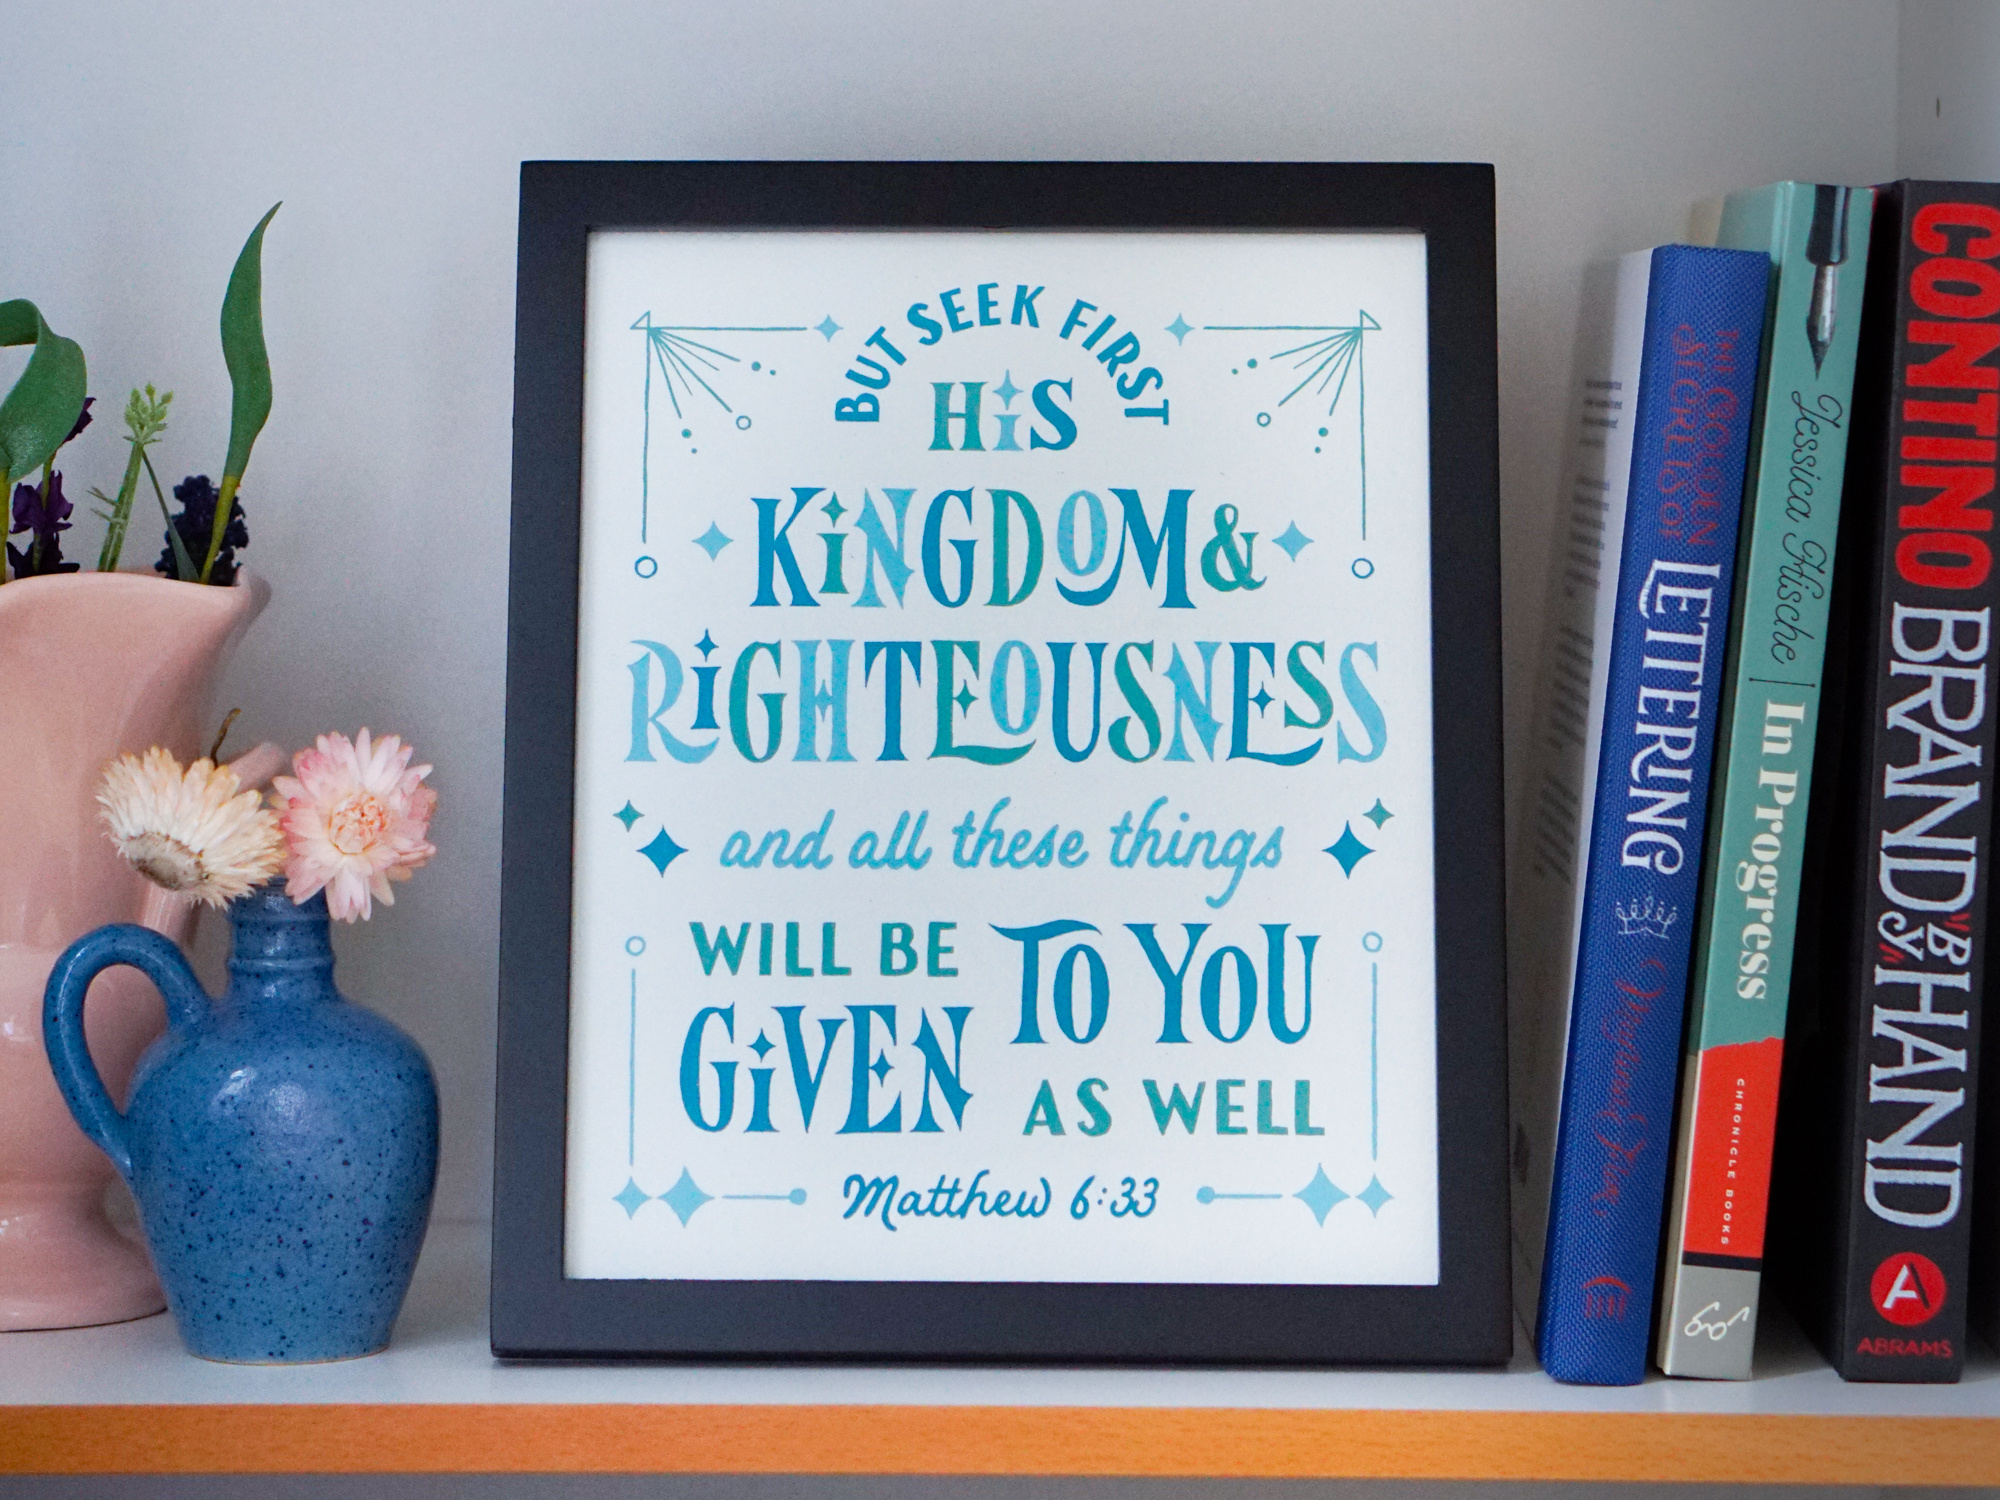 BUT SEEK FIRST
HiS
KiNGDOM &
RiGHTEOUSNESS
and all these things
WILL BE
GiVEN
TO YOU
AS WELL
Matthew 6:33
THE GOLDEN
SECRETS OF
LETTERING
Martina Flor
Jessica Hische | In Progress
CHRONICLE BOOKS
CONTINO BRAND by HAND
A
ABRAMS